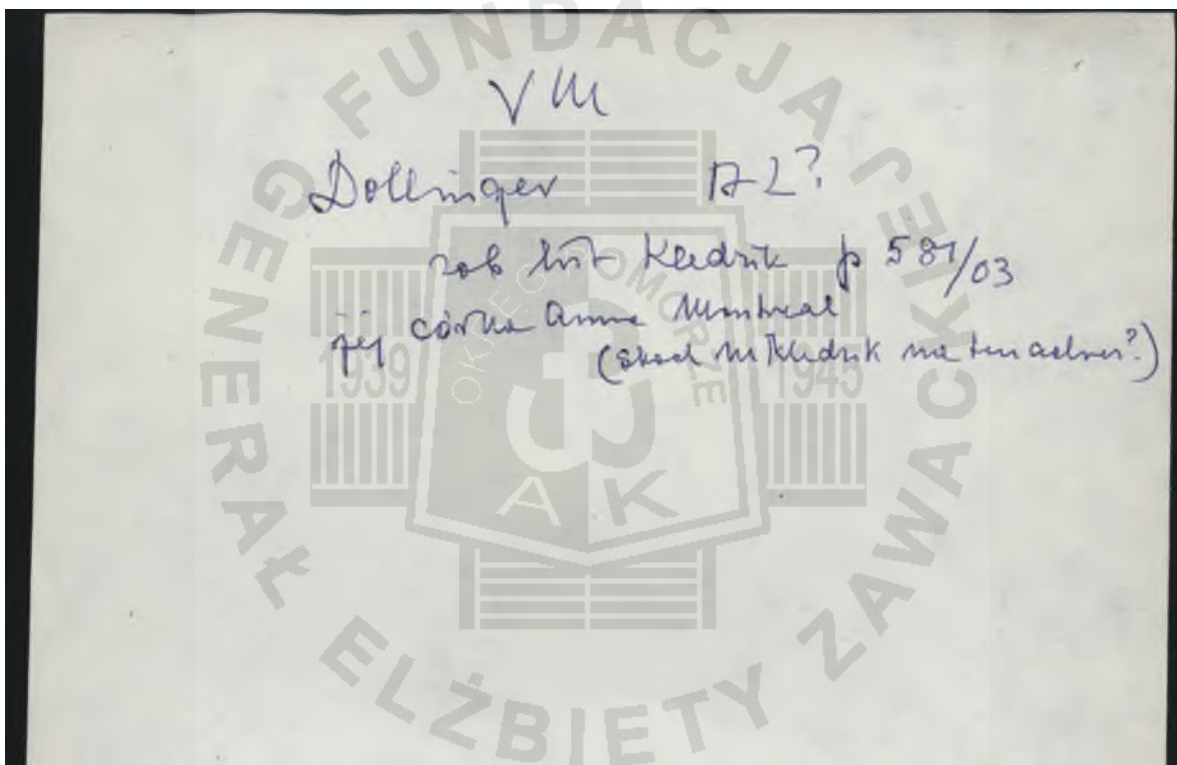 VM
Dollinger AL?
zob list Kledzik p 581/03
jej córka Anna Montreal
(skąd M Kledzik ma ten adres?)
FUNDACJA GENERAŁ ELŻBIETY ZAWACKIEJ
OKRĘG POMORZE
1939 1945
AK